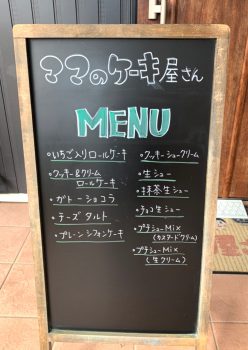 ママのケーキ屋さん
MENU
・いちご入りロールケーキ
・クッキー&クリーム
ロールケーキ
・ガトーショコラ
・チーズタルト
・プレーンシフォンケーキ
・クッキーシュークリーム
・生シュー
・抹茶生シュー
・チョコ生シュー
・プチシューMix
(カスタードクリーム)
・プチシューMix
(生クリーム)